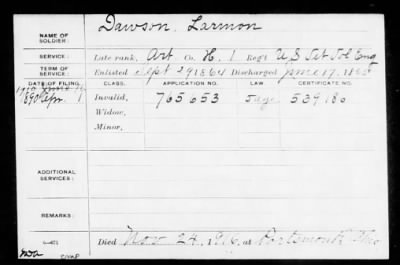 Dawson, Larmon
NAME OF SOLDIER:
SERVICE: Late rank, Art Co. H, 1 Reg't U.S Vet Vol Eng
TERM OF SERVICE: Enlisted Sept 29 1864 Discharged June 17, 1865
DATE OF FILING. CLASS. APPLICATION NO. LAW. CERTIFICATE NO.
1890 Invalid, 765653 539180
Widow,
Minor,
ADDITIONAL SERVICES:
REMARKS:
Died Nov 24, 1916, at Portsmouth Ohio